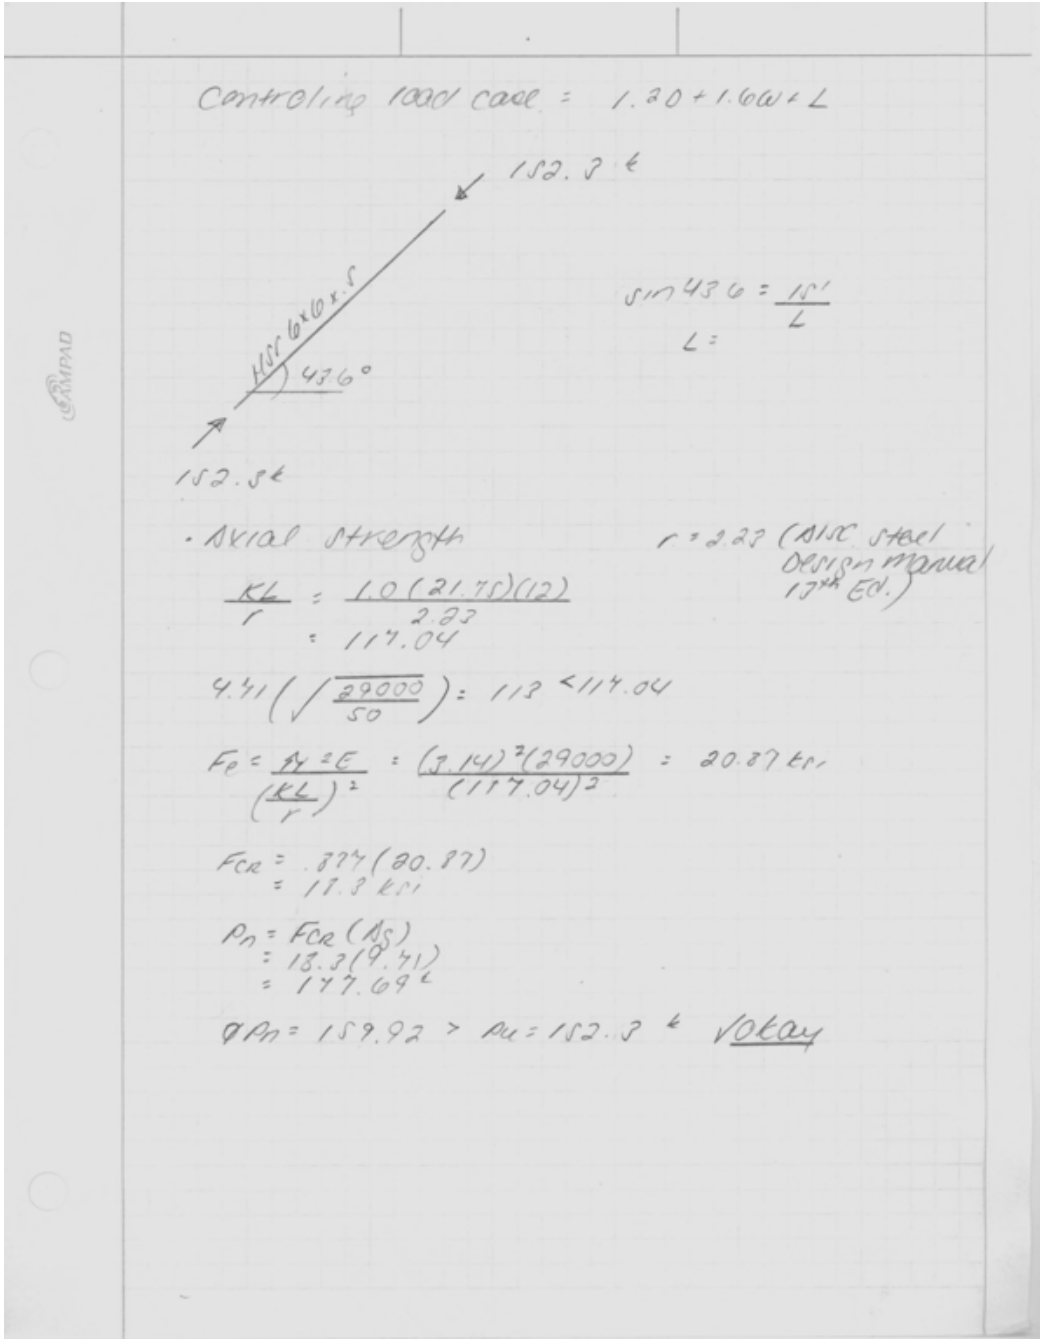 Controling load case = 1.2D + 1.6W + L
152.3 k
HSS 6x6x.5
43.6°
152.3k
sin 43.6 = 15'/L
L =
CAMPAD
· Axial strength
r = 2.23 (AISC Steel
Design Manual
13th Ed.)
KL/r = 1.0(21.75)(12)/2.23
= 117.04
4.71(√29000/50) = 113 < 117.04
Fe = π²E/(KL/r)² = (3.14)²(29000)/(117.04)² = 20.87 ksi
FCR = .877(20.87)
= 18.3 ksi
Pn = FCR(Ag)
= 18.3(9.71)
= 177.69k
φPn = 159.92 > Pu = 152.3 k √okay